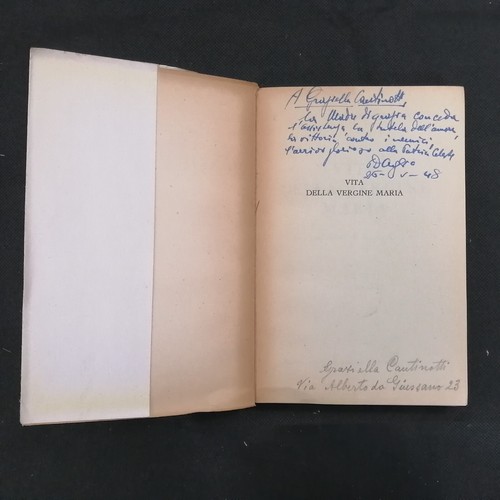 A Graziella Cantinotti,
La Madre di grazia conceda
l'assistenza la tutela dell'amore
la vittoria contro i nemici,
l'arrivo glorioso alla Patria Celeste
26 - V - 48
VITA
DELLA VERGINE MARIA
Graziella Cantinotti
Via Alberto da Giussano 23